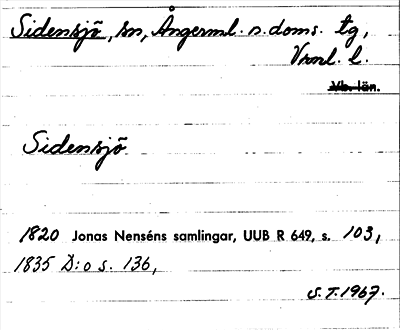 Sidensjö, sn, Ångerml. n. doms. tg,
Vrnl. l.
Vb. län.
Sidensjö
1820 Jonas Nenséns samlingar, UUB R 649, s. 103,
1835 D:o s. 136,
S.T. 1967.